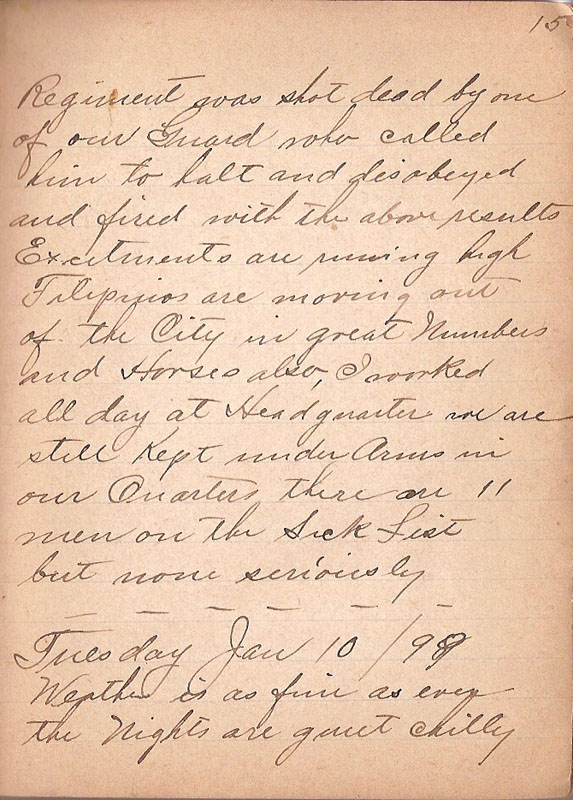 15
Regiment was shot dead by one
of our Guard who called
him to halt and disobeyed
and fired with the above results
Excitments are runing high
Filipinos are moving out
of the City in great Numbers
and Horses also, I worked
all day at Headquarter we are
still Kept under Arms in
our Quarters there are 11
men on the Sick List
but none seriously
Tuesday Jan 10 / 99
Weather is as fine as ever
the Nights are quiet chilly